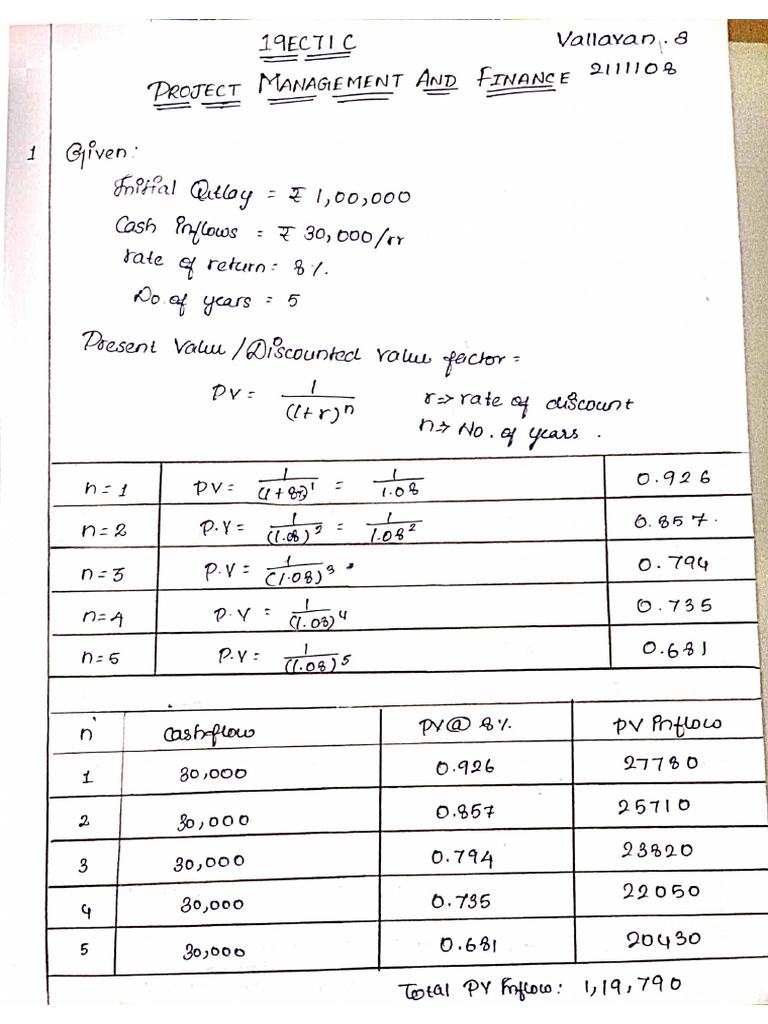 19EC71C
Vallavan. S
PROJECT MANAGEMENT AND FINANCE 2111108
1 Given:
Initial Outlay = ₹ 1,00,000
Cash inflows = ₹ 30,000/yr
rate of return: 8%.
No. of years = 5
Present Value / Discounted value factor =
PV = 1/(1+r)^n
r => rate of discount
n => No. of years.
n=1 PV = 1/(1+8%)^1 = 1/1.08 0.926
n=2 P.V = 1/(1.08)^2 = 1/1.08^2 0.857.
n=3 P.V = 1/(1.08)^3 0.794
n=4 P.V = 1/(1.08)^4 0.735
n=5 P.V = 1/(1.08)^5 0.681
n Cashflow PV@ 8% PV Inflow
1 30,000 0.926 27780
2 30,000 0.857 25710
3 30,000 0.794 23820
4 30,000 0.735 22050
5 30,000 0.681 20430
Total PV Inflow: 1,19,790